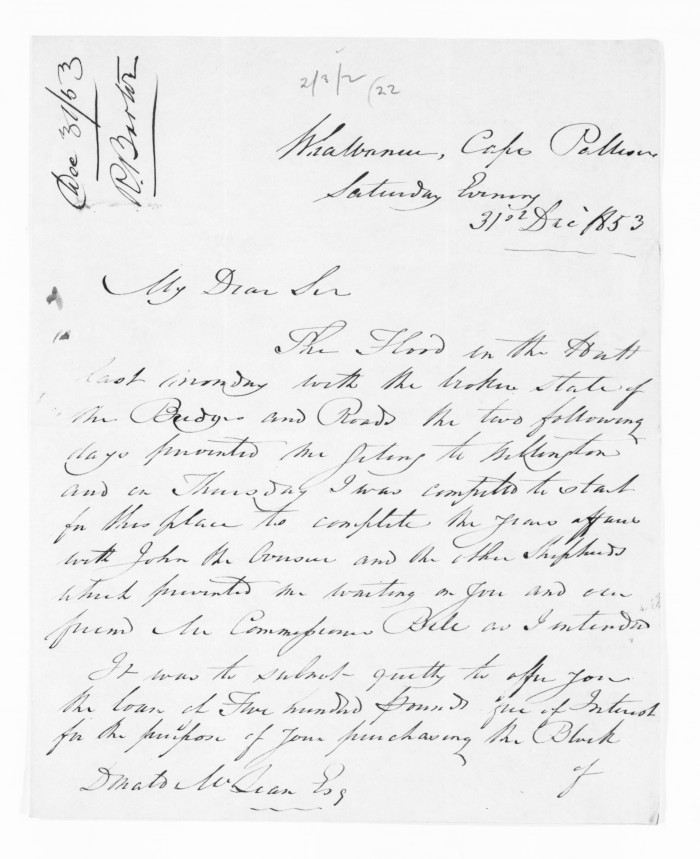 Dec 31/53
R. Barton
2/3/2 (22
Cape Palliser
Saturday Evening
31st Dec 1853
My Dear Sir
The Flood in the Hutt
last monday with the broken state of
the Bridges and Roads the two following
days prevented me geting to Wellington
and on Thursday I was compelled to start
for this place to complete the years affairs
with John the and the other Shepherds
which prevented me waiting on you and our
friend Mr Commissioner Bell as I intended
It was to submit quietly to offer you
the loan of Five hundred pounds free of Interest
for the purpose of your purchasing the Block
of
Donald McLean Esq